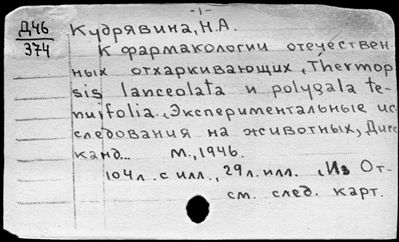 -1-
Д46
374
Кудрявина, Н.А.
К фармакологии отечествен-
ных отхаркивающих, Thermop
sis lanceolata и polygala te-
nuifolia. Экспериментальные ис
следования на животных, Дисс
канд... М., 1946.
104 л. с илл., 29 л. илл. , Из От-
см. след. карт.